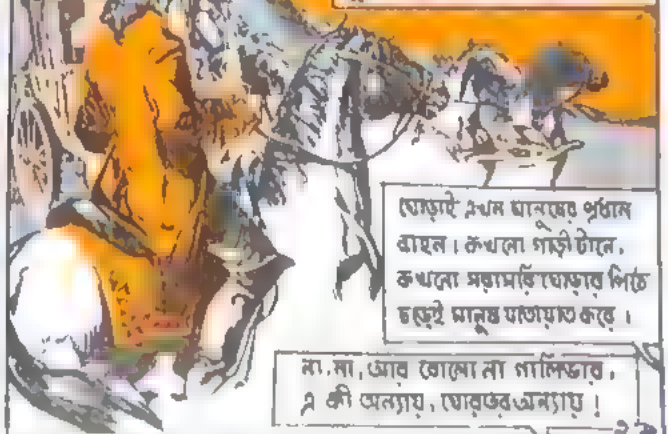 ঘোড়াই এখন মানুষের প্রধান
বাহন। কখনো গাড়ী টানে,
কখনো সরাসরি ঘোড়ার পিঠে
চড়েই মানুষ যাতায়াত করে।
না, না, আর বোলো না গালিভার,
এ কী অন্যায়, ঘোরতর অন্যায়!